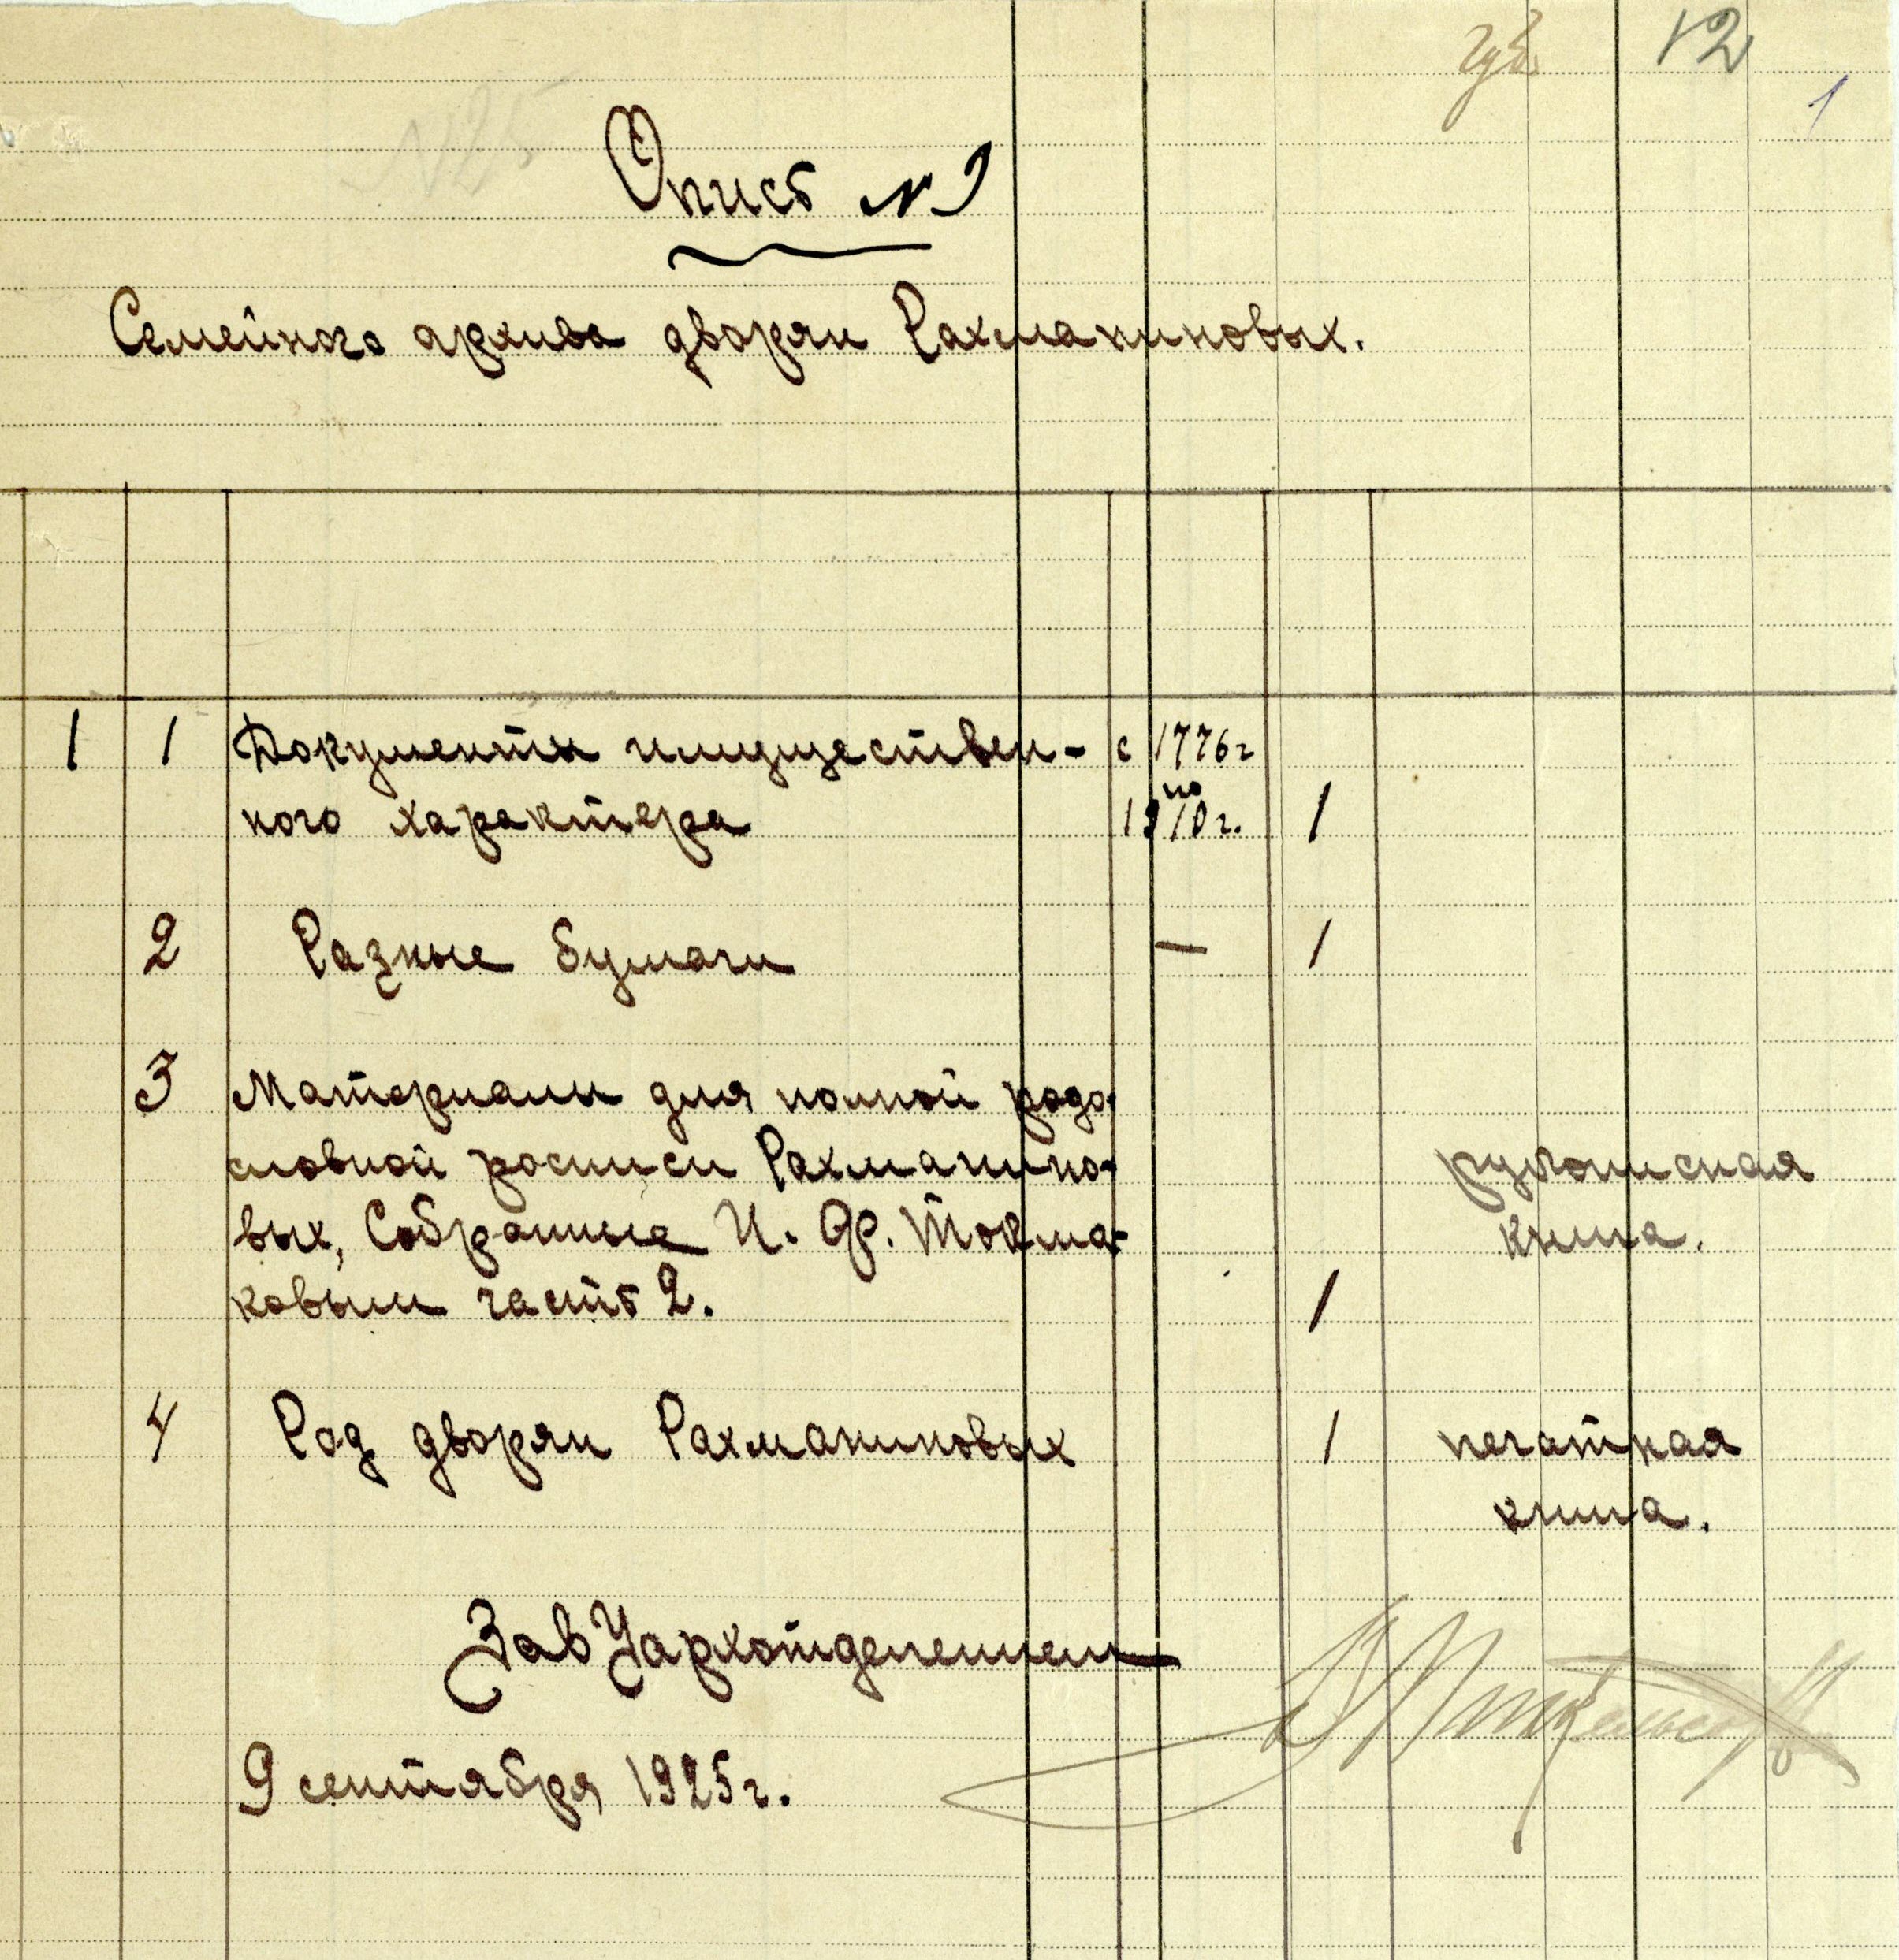 12
1
№25
Опись №9
Семейного архива дворян Рахманиновых.
1 1 Документы имуществен- с 1776г
по
ного характера 1910г. 1
2 Разные бумаги — 1
3 Материалы для полной родо-
словной росписи Рахманино- рукописная
вых, Собранные И. Ф. Токма- книга.
ковым часть 2. 1
4 Род дворян Рахманиновых 1 печатная
книга.
Зав Уархотделением
9 сентября 1925г.